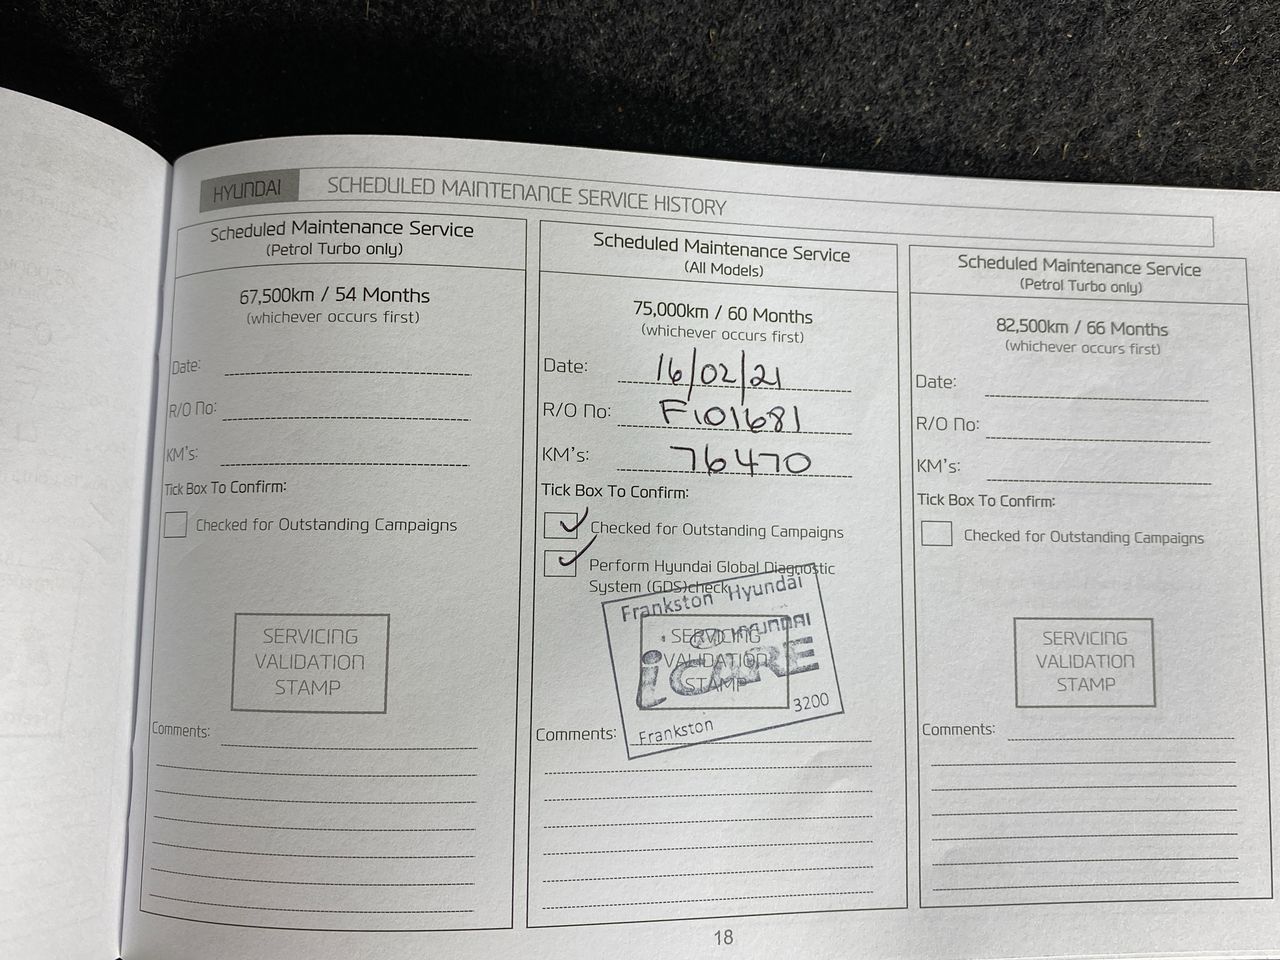 HYUNDAI
SCHEDULED MAINTENANCE SERVICE HISTORY
Scheduled Maintenance Service
(Petrol Turbo only)
67,500km / 54 Months
(whichever occurs first)
Date:
R/O No:
KM's:
Tick Box To Confirm:
Checked for Outstanding Campaigns
SERVICING
VALIDATION
STAMP
Comments:
Scheduled Maintenance Service
(All Models)
75,000km / 60 Months
(whichever occurs first)
Date: 16/02/21
R/O No: F101681
KM's: 76470
Tick Box To Confirm:
Checked for Outstanding Campaigns
Perform Hyundai Global Diagnostic
System (GDS)check
Frankston Hyundai
HYUNDAI
iCARE
Frankston 3200
SERVICING
VALIDATION
STAMP
Comments:
Scheduled Maintenance Service
(Petrol Turbo only)
82,500km / 66 Months
(whichever occurs first)
Date:
R/O No:
KM's:
Tick Box To Confirm:
Checked for Outstanding Campaigns
SERVICING
VALIDATION
STAMP
Comments:
18